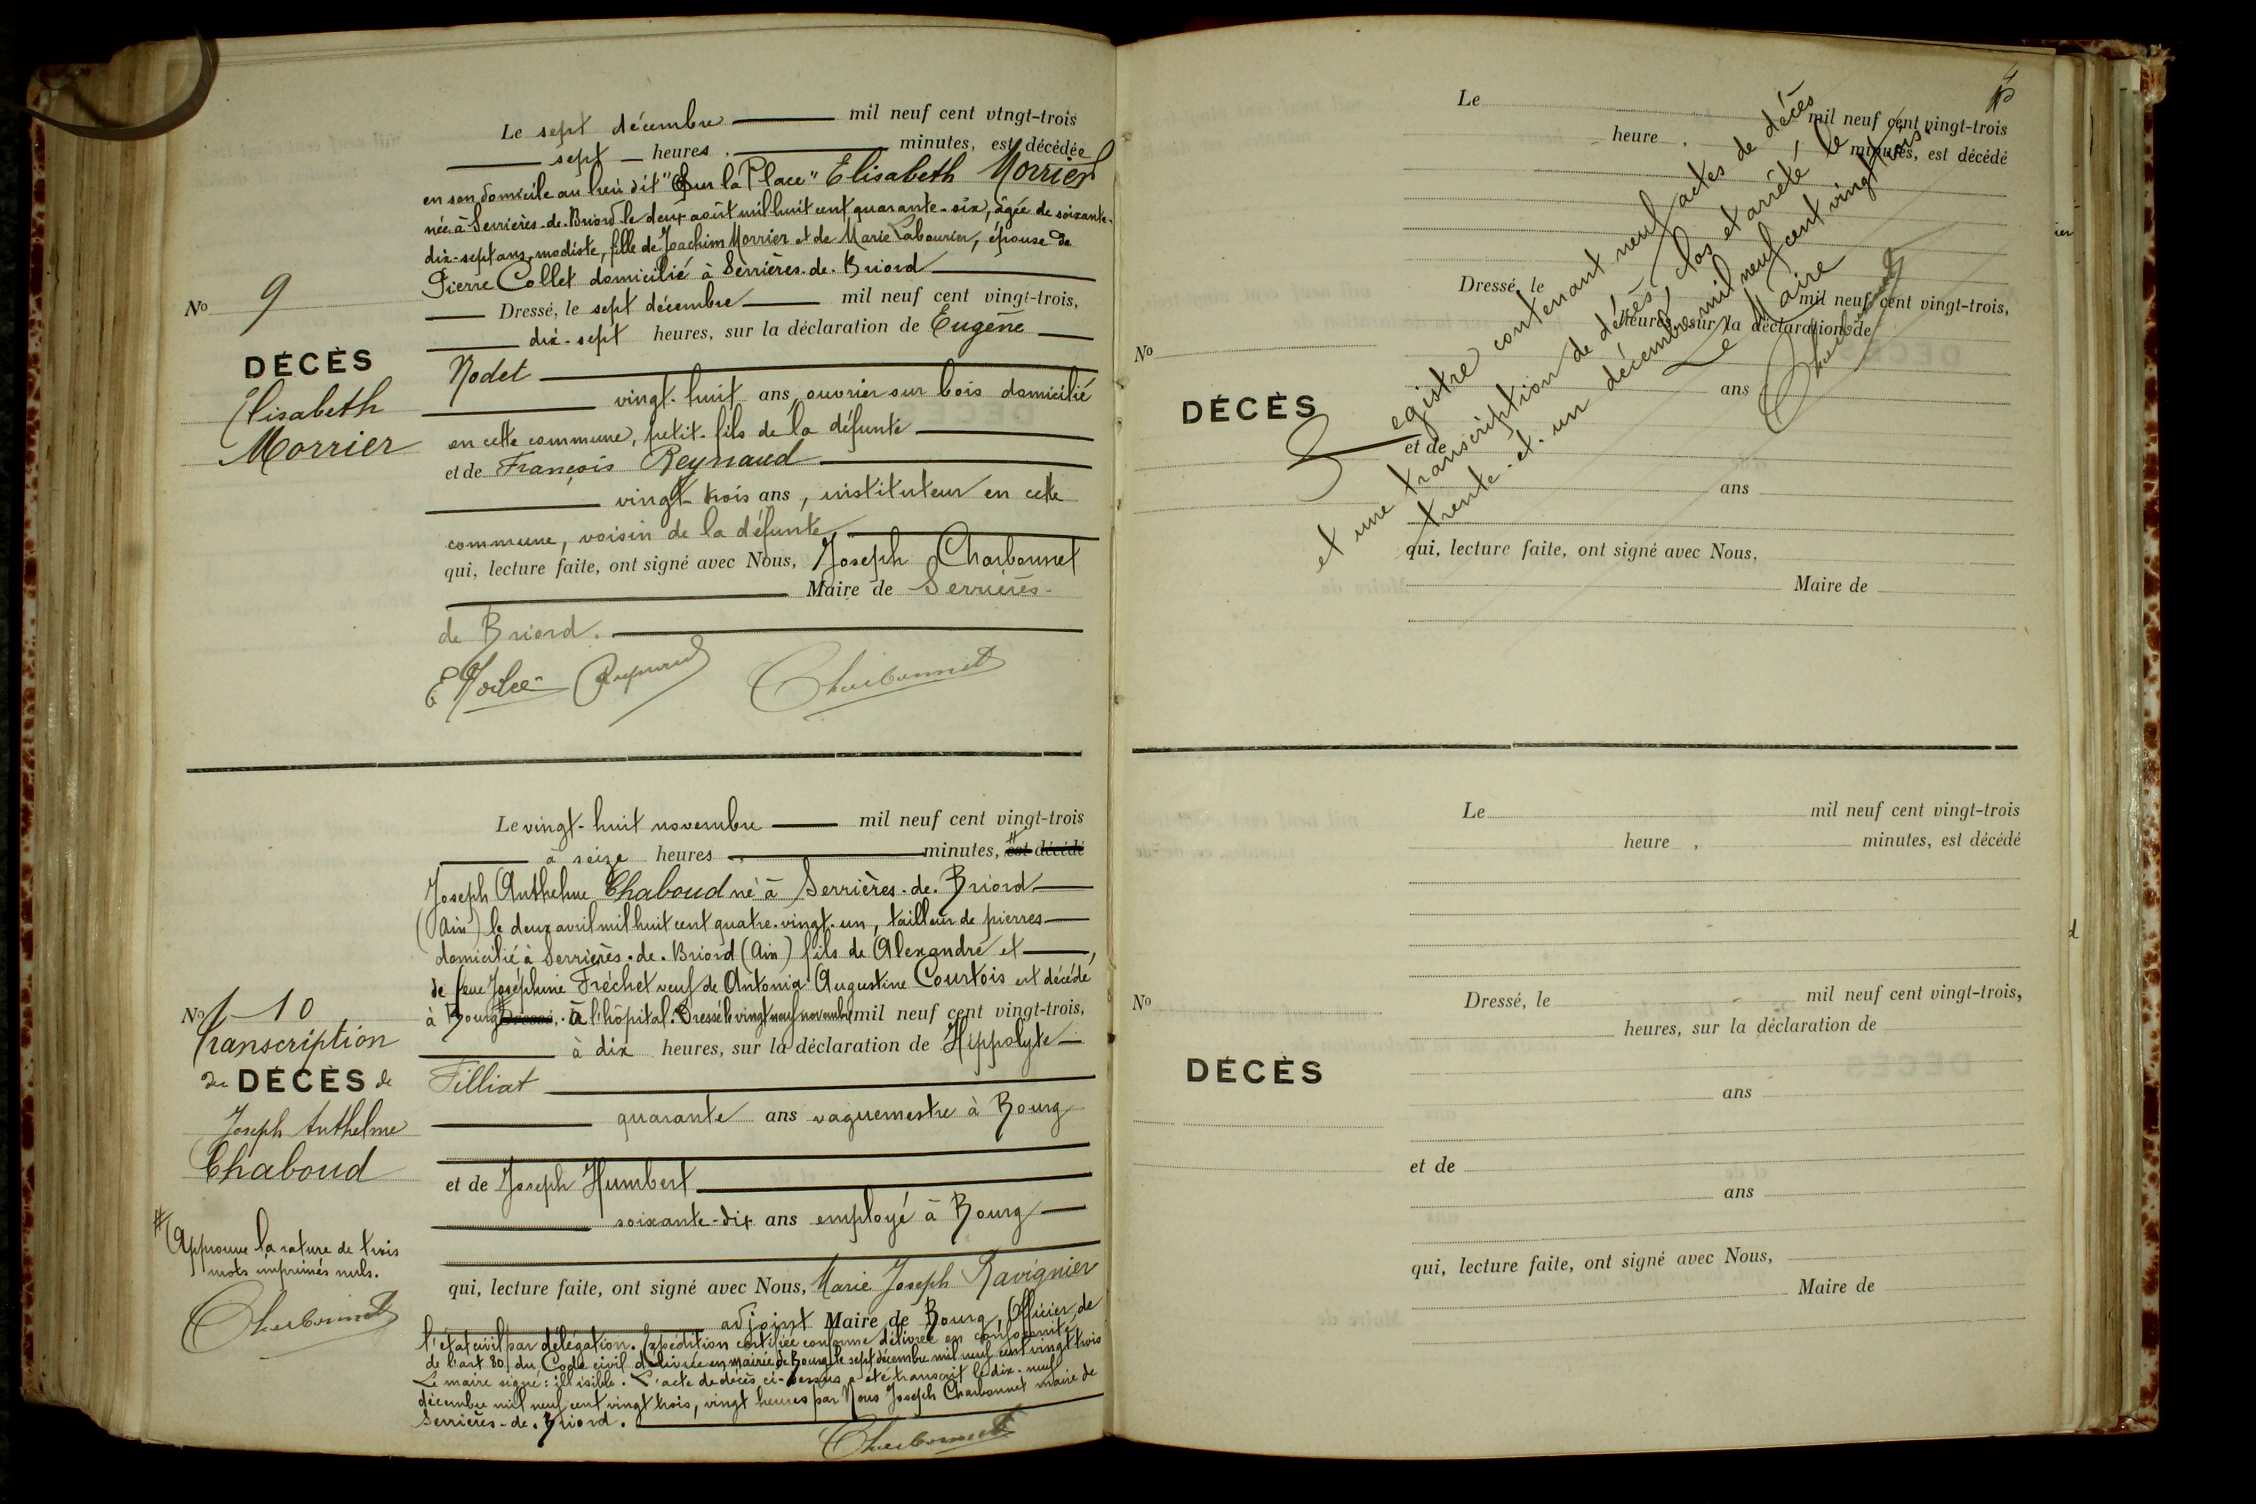 Le sept décembre mil neuf cent vingt-trois
sept heures minutes, est décédée
en son domicile au lieu dit "Sur la Place" Elisabeth Morrier
née à Serrières-de-Briord le deux août mil huit cent quarante-six, âgée de soixante-
dix-sept ans, modiste, fille de Joachim Morrier et de Marie Labourier, épouse de
Pierre Collet domicilié à Serrières-de-Briord
No 9
Dressé, le sept décembre mil neuf cent vingt-trois,
dix-sept heures, sur la déclaration de Eugène
DÉCÈS
Elisabeth
Morrier
Nodet
vingt-huit ans, ouvrier sur bois domicilié
en cette commune, petit-fils de la défunte
et de François Reynaud
vingt-trois ans, instituteur en cette
commune, voisin de la défunte
qui, lecture faite, ont signé avec Nous, Joseph Charbonnet
Maire de Serrières-
de Briord.
Reynaud Charbonnet
Le vingt-huit novembre mil neuf cent vingt-trois
à seize heures minutes, est décédé
Joseph Anthelme Chaboud né à Serrières-de-Briord
(Ain) le deux avril mil huit cent quatre-vingt-un, tailleur de pierres
domicilié à Serrières-de-Briord (Ain) fils de Alexandre et
de feue Joséphine Fréchet veuf de Antonia Augustine Courtois est décédé
No 10
à Bourg à l'hôpital. Dressé le vingt neuf novembre mil neuf cent vingt-trois,
à dix heures, sur la déclaration de Hippolyte
Transcription
du DÉCÈS de
Joseph Anthelme
Chaboud
Tilliat
quarante ans vaguemestre à Bourg
et de Joseph Humbert
soixante-dix ans employé à Bourg
# Approuve la rature de trois
mots imprimés nuls.
Charbonnet
qui, lecture faite, ont signé avec Nous, Marie Joseph Ravignier
adjoint Maire de Bourg, Officier de
l'état civil par délégation. Expédition certifiée conforme délivrée en conformité
de l'art. 80 du Code civil délivrée en mairie de Bourg le sept décembre mil neuf cent vingt trois
Le maire signé: illisible. L'acte de décès ci-dessus a été transcrit le dix-neuf
décembre mil neuf cent vingt trois, vingt heures par Nous Joseph Charbonnet maire de
Serrières-de-Briord.
Charbonnet
Le mil neuf cent vingt-trois
heure minutes, est décédé
Dressé, le mil neuf cent vingt-trois,
heures, sur la déclaration de
No
DÉCÈS
ans
et de
ans
qui, lecture faite, ont signé avec Nous,
Maire de
Registre contenant neuf actes de décès
et une transcription de décès, clos et arrêté, le
trente-et-un décembre mil neuf cent vingt trois.
Le Maire
Charbonnet
Le mil neuf cent vingt-trois
heure , minutes, est décédé
No
Dressé, le mil neuf cent vingt-trois,
heures, sur la déclaration de
DÉCÈS
ans
et de
ans
qui, lecture faite, ont signé avec Nous,
Maire de